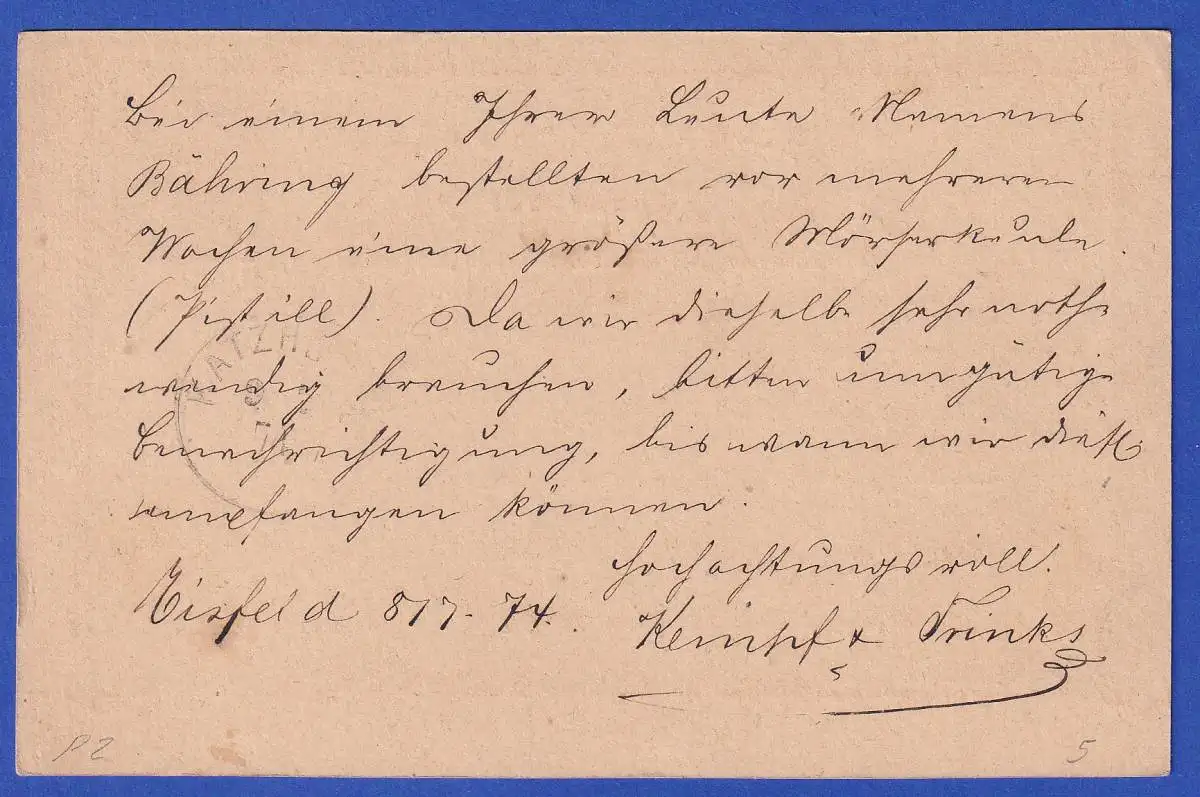 Bei einem Ihrer Leute Namens
Bähring bestellten vor mehreren
Wochen eine größere Mörserkeule
(Pistill). Da wir dieselbe sehr noth-
wendig brauchen, bitten um gütige
Benachrichtigung, bis wann wir diese
empfangen können.
Hochachtungsvoll.
Eisfeld 8/7. 74.
Kempf & Trinks
ATZH
P2
5